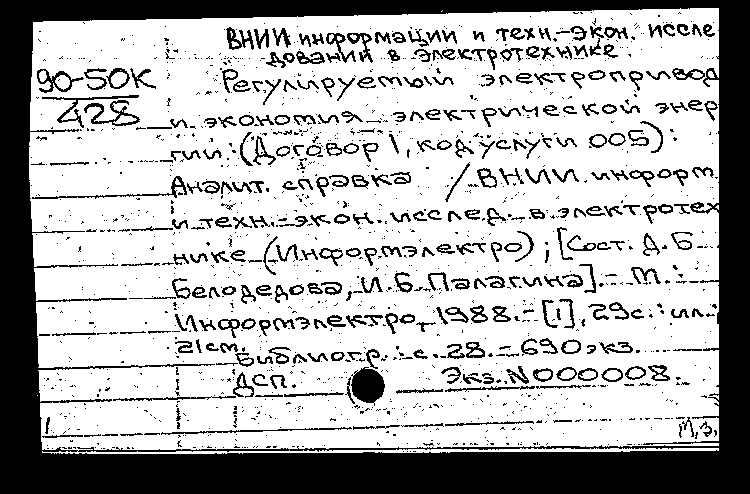 ВНИИ информации и техн.-экон. иссле
дований в электротехнике.
90-50К
428
Регулируемый электропривод
и экономия электрической энер
гии: (Договор 1, код услуги 005):
Аналит. справка / ВНИИ информ.
и техн.-экон. исслед. в электротех
нике (Информэлектро); [Сост. Д.Б
Белодедова, И.Б. Палагина].- М.:
Информэлектро, 1988.- [1], 29с.: ил.;
21см.
Библиогр.: с. 28. - 690 экз.
ДСП. Экз. N000008.
1
М,3,